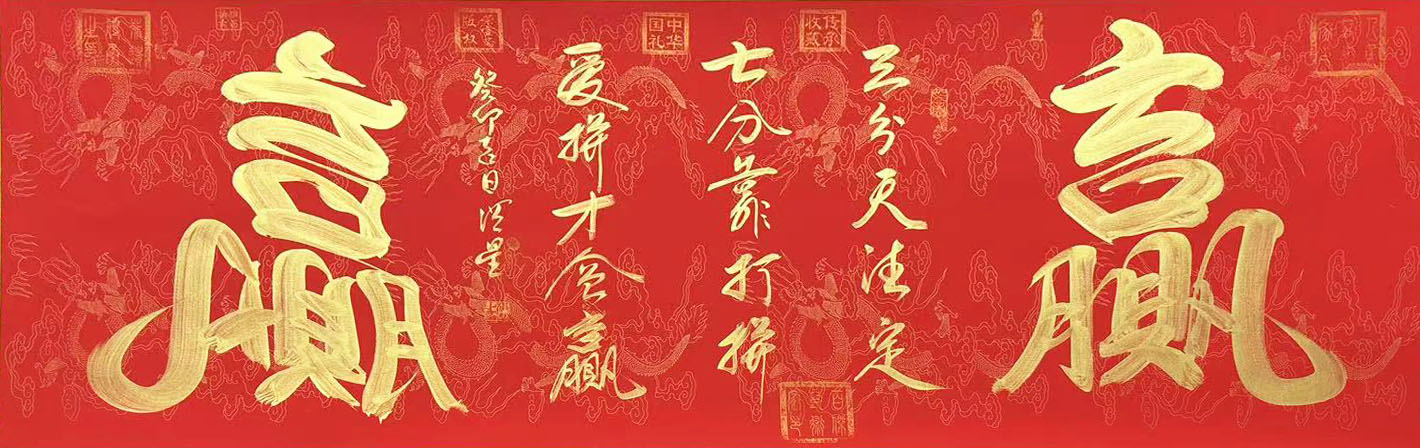 贏
三分天注定
七分靠打拼
爱拼才会贏
癸卯吉日
贏
传承
收藏
中华
国礼